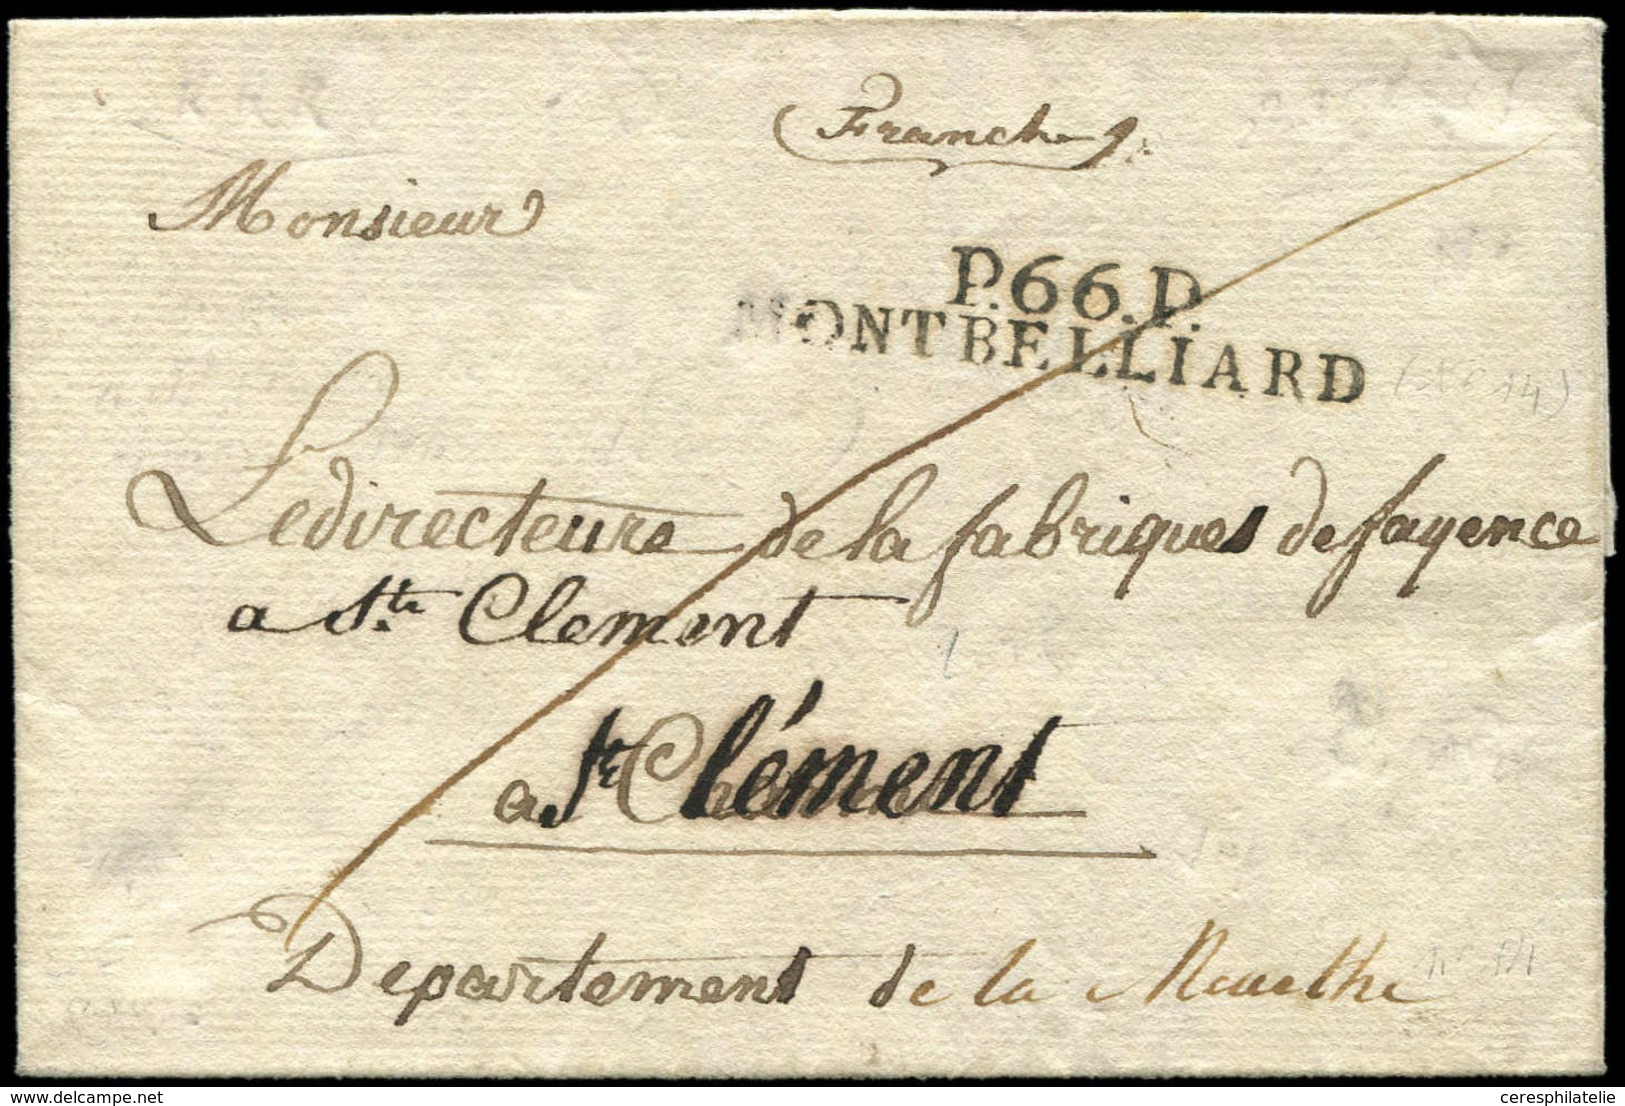 Franche
Monsieur
P.66.P.
MONTBELLIARD
Ledirecteure de la fabriques de fayence
a Ste Clement
a St Clément
Departement de la Meurthe
delcampe.net
ceresphilatelie